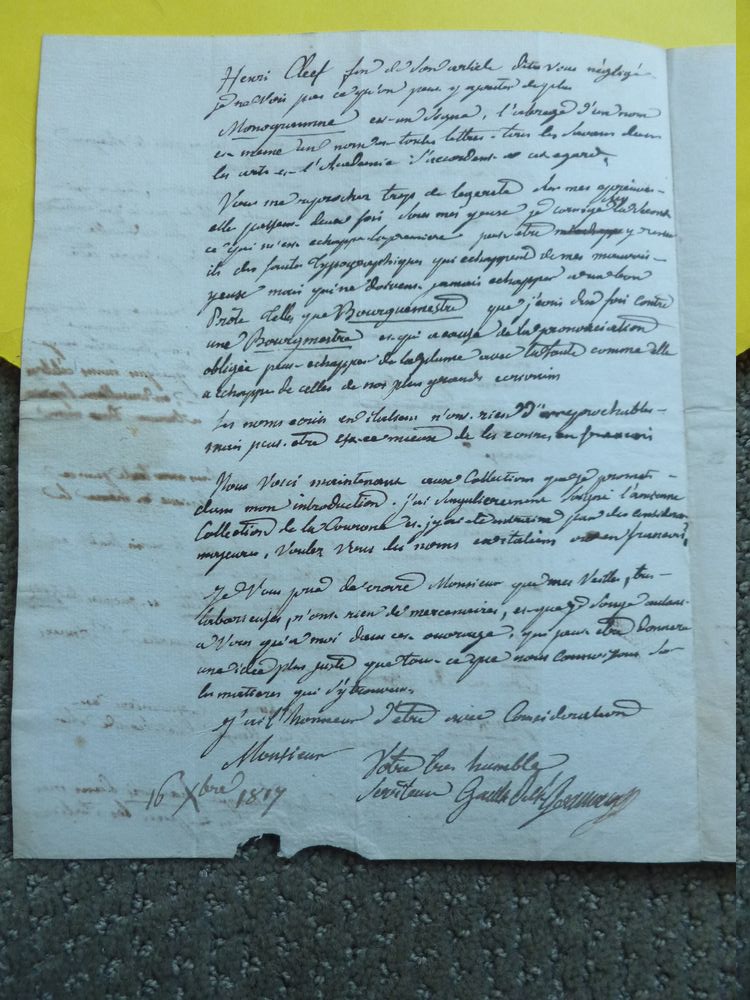 Henri Cleef fin de son article dites vous négligé
je ne vois pas ce qu'on peut y ajouter de plus
Monogramme est un signe, l'abregé d'un nom
et meme un nom en toutes lettres. tous les savans dans
les arts et l'Academie s'accordent a cet egard.
Vous me reprochez trop de legereté dans mes epreuves
elle passent deux fois sous mes yeux je corrige la seconde
ce qui m'est echappé la premiere peut etre y reste
ils des fautes typographiques qui echappent de mes mauvais
yeux mais qui ne doivent jamais echapper a un bon
Prote telles que Bourguemestre que j'ecris dix fois contre
une Bourgmestre et qui a cause de la prononciation
obligée peut echapper de la plume avec la faute comme elle
a echappé de celles de nos plus grands ecrivains
Les noms ecrits en italien n'ont rien d'irreprochables
mais peut etre est-ce mieux de les ecrire en francais
Nous voici maintenant aux Collections que je promets
dans mon introduction. j'ai singulierement soigné l'ancienne
Collection de la Couronne et j'y ai eté par des considerations
majeures, voulez vous les noms en italien ou en francais.
Je vous prie de croire Monsieur que mes Veilles, tres
laborieuses, n'ont rien de mercenaires, et que je songe autant
a vous qu'a moi dans cet ouvrage. qui peut etre donnera
une idée plus juste que tout ce que nous connaissons sur
les matieres qui s'y trouvent.
J'ai l'honneur d'etre avec Consideration
Monsieur
Votre tres humble
Serviteur Gault de St Germain
16 Xbre 1817